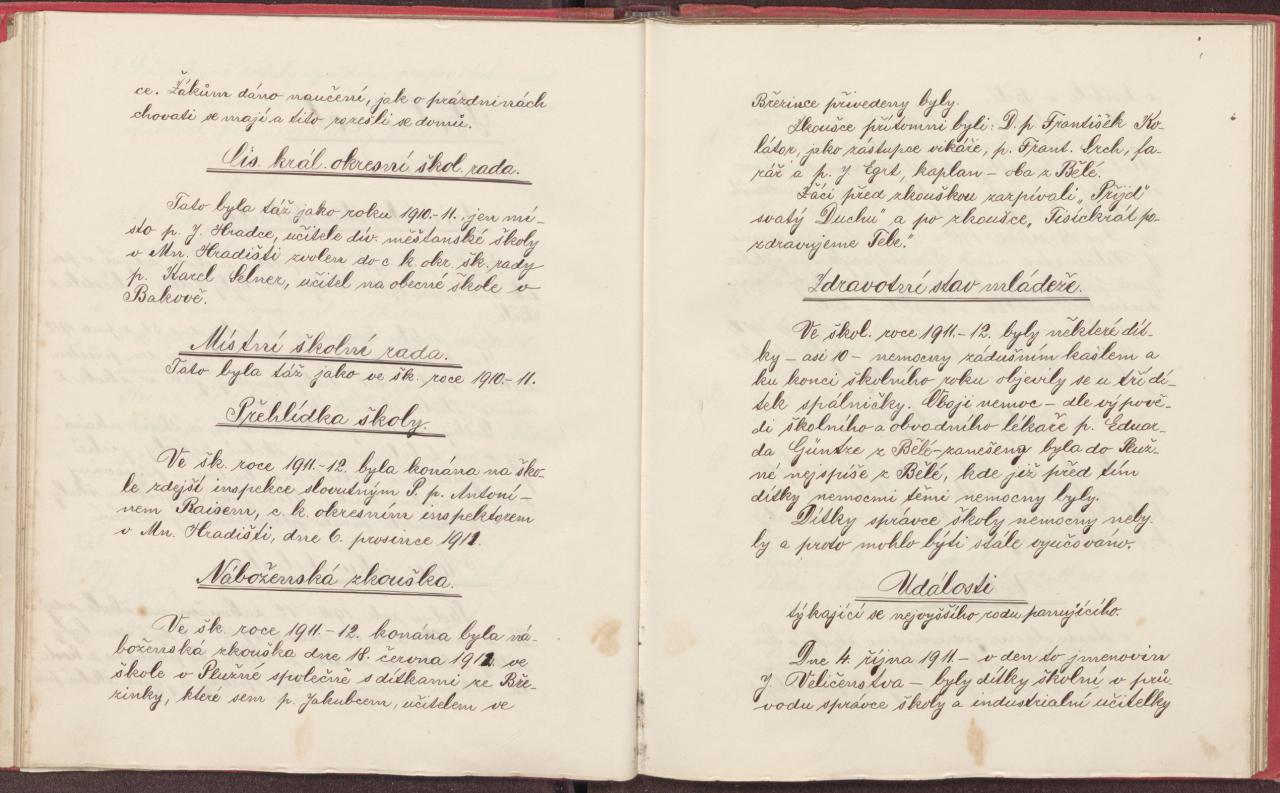 ce. Žákům dáno naučení, jak o prázdninách
chovati se mají a tito rozešli se domů.
Cis. král. okresní škol. rada.
Tato byla táž jako roku 1910-11, jen mí-
sto p. J. Hradce, učitele dív. měšťanské školy
v Mn. Hradišti zvolen do c. k. okr. šk. rady
p. Karel Selner, učitel na obecné škole v
Bakově.
Místní školní rada.
Tato byla táž jako ve šk. roce 1910-11.
Přehlídka školy.
Ve šk. roce 1911-12. byla konána na ško-
le zdejší inspekce slovutným P. p. Antoní-
nem Raisem, c. k. okresním inspektorem
v Mn. Hradišti, dne 6. prosince 1911.
Náboženská zkouška.
Ve šk. roce 1911-12. konána byla ná-
boženská zkouška dne 18. června 1912 ve
škole v Plužné společně s dítkami ze Bře-
zinky, které sem p. Jakubcem, učitelem ve
Březince přivedeny byly.
Zkoušce přítomni byli: D. p. František Ko-
látor, jako zástupce vikáře, p. Frant. Srch, fa-
rář a p. J. Egrt, kaplan - oba z Bělé.
Žáci před zkouškou zazpívali „Přijď
svatý Duchu" a po zkoušce „Tisíckrát po-
zdravujeme Tebe."
Zdravotní stav mládeže.
Ve škol. roce 1911-12. byly některé dít-
ky - asi 10 - nemocny zádušním kašlem a
ku konci školního roku objevily se u tří dí-
tek spálničky. Obojí nemoc - dle výpově-
di školního a obvodního lékaře p. Eduar-
da Güntze z Bělé - zanešena byla do Pluž-
né nejspíše z Bělé, kde již před tím
dítky nemocmi těmi nemocny byly.
Dítky správce školy nemocny neby-
ly a proto mohlo býti stále vyučováno.
Události
týkající se nejvyššího rodu panujícího.
Dne 4. října 1911 - v den to jmenovin
J. Veličenstva - byly dítky školní v prů-
vodu správce školy a industrialní učitelky